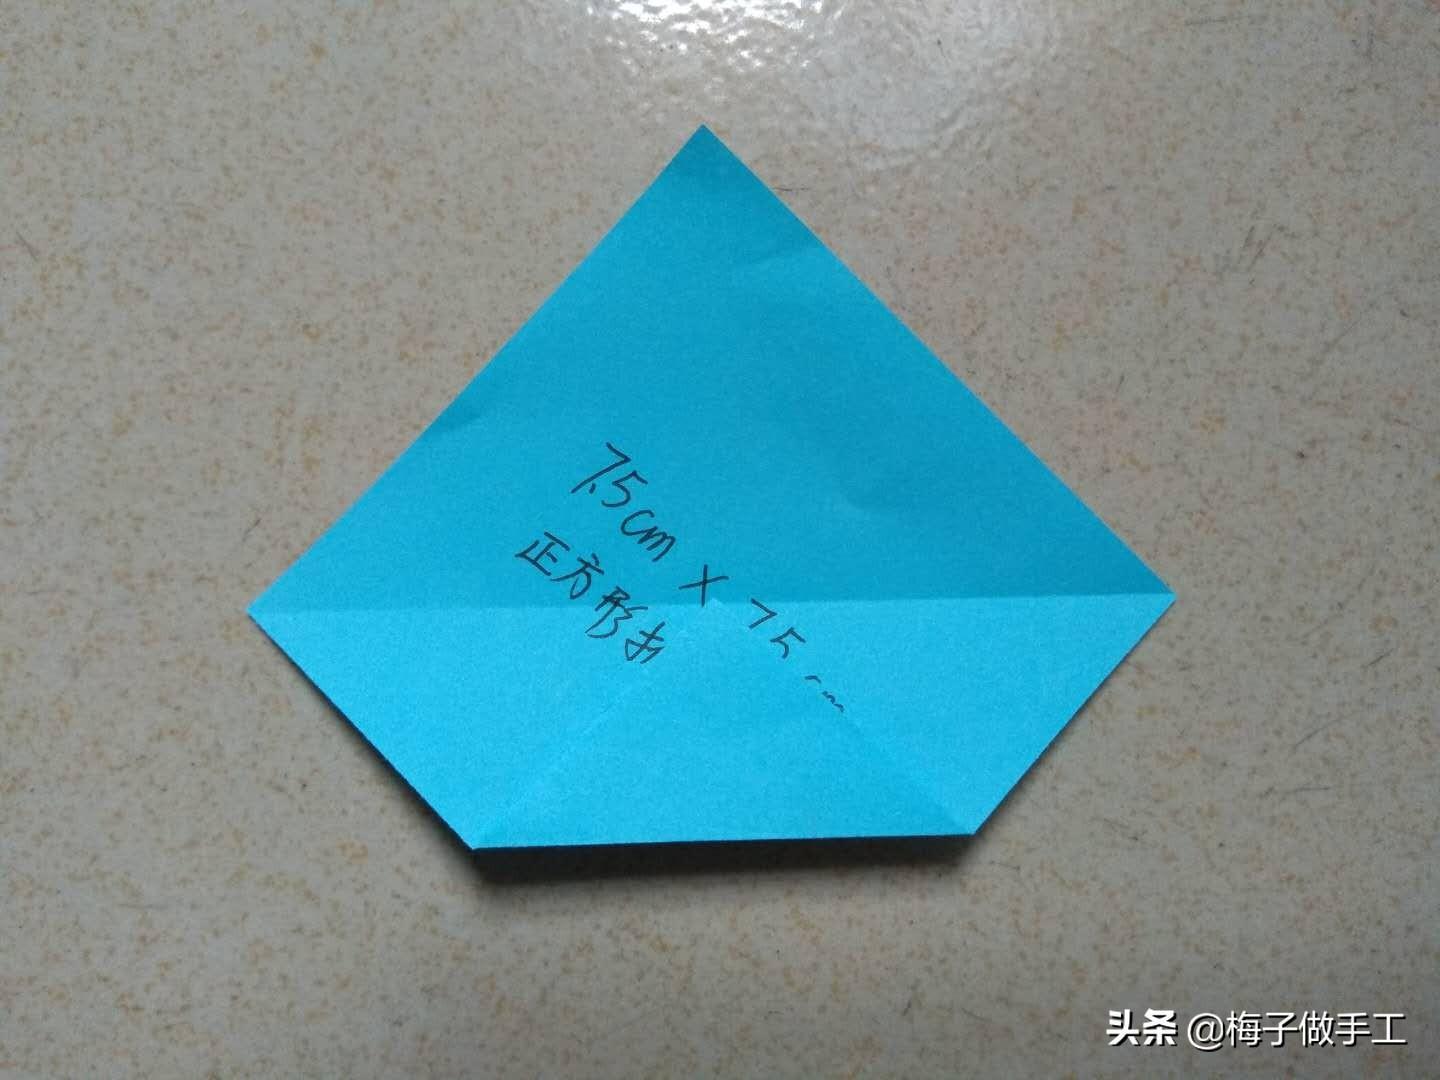 7.5cm × 7.5
正方形
头条 @梅子做手工